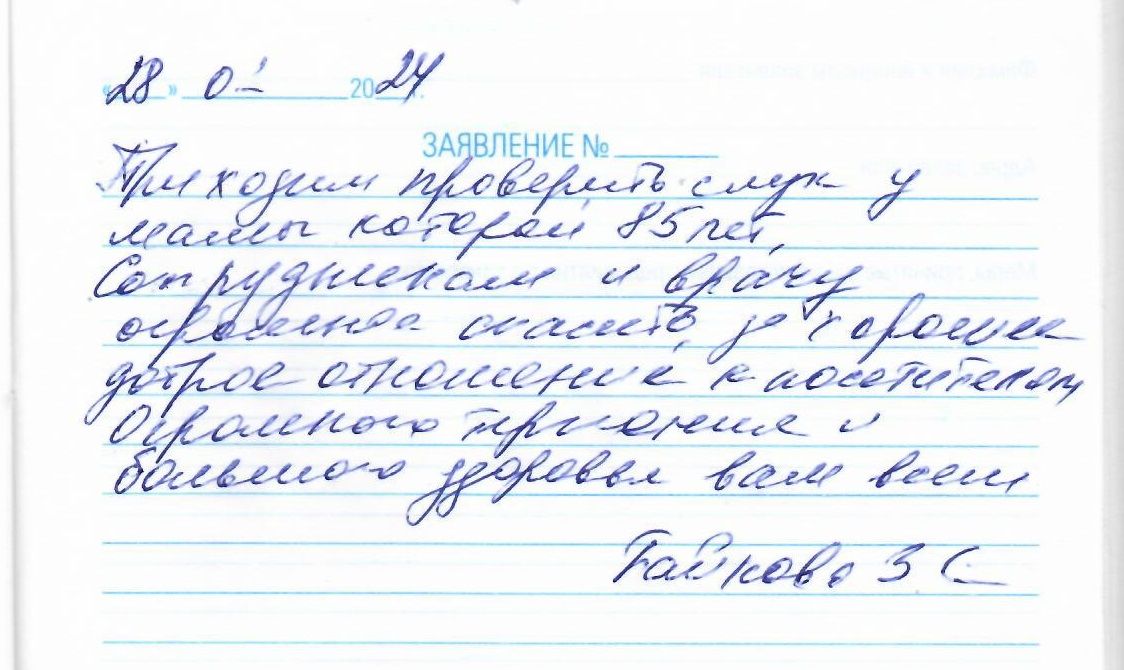 «28» 01 2024 г.
ЗАЯВЛЕНИЕ №
Приходим проверить слух у
мамы которой 85 лет,
Сотрудникам и врачу
огромное спасибо, за хорошее
доброе отношение к посетителям
Огромного терпения и
большого здоровья вам всем
З С